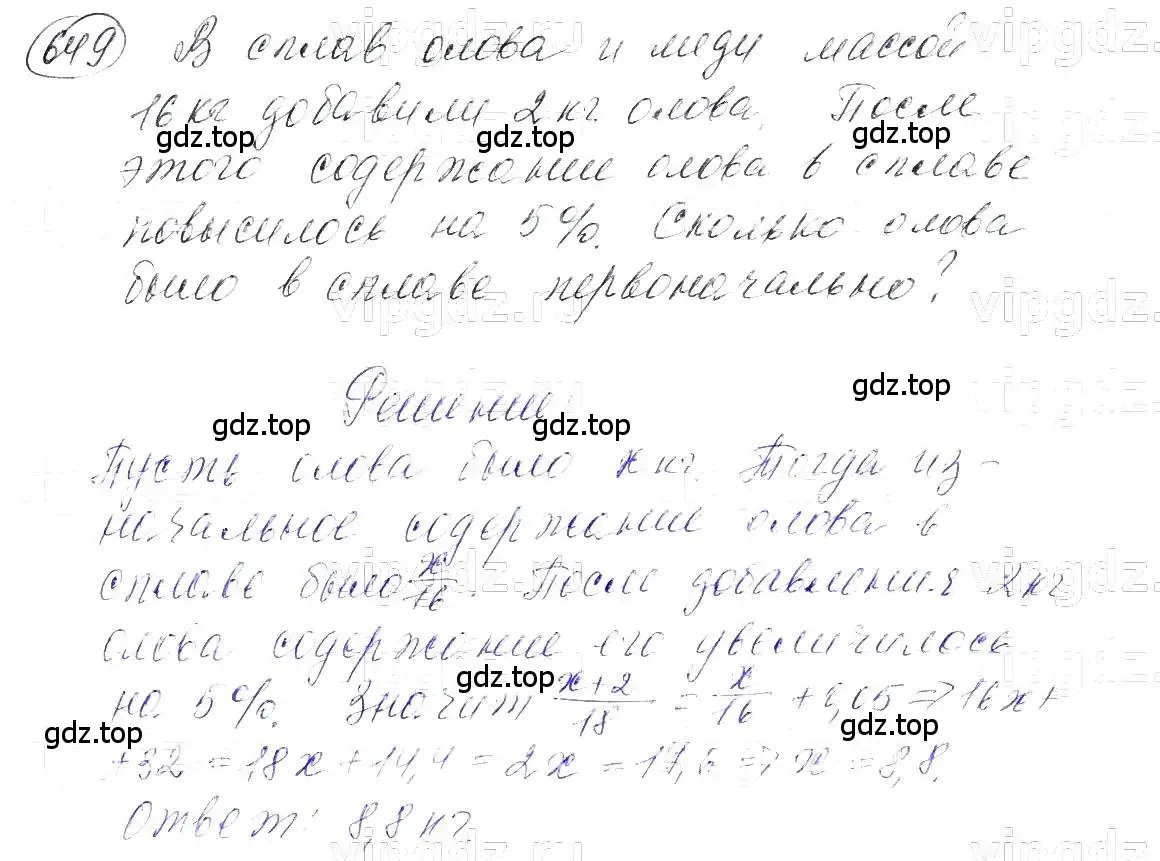 649 В сплав олова и меди массой
16 кг добавили 2 кг олова. После
gdz.top gdz.top gdz.top
этого содержание олова в сплаве
повысилось на 5%. Сколько олова
было в сплаве первоначально?
vipgdz.ru vipgdz.
gdz.top
Решение
gdz.top gdz.top
Пусть олова было x кг. Тогда из-
начальное содержание олова в
сплаве было x/16. После добавления 2 кг
олова содержание его увеличилось
gdz.top
на 5%. Значит x+2/18 = x/16 + 0,05 => 16x+
gdz.top gdz.top
+32 = 18x + 14,4 = 2x = 17,6 => x = 8,8.
Ответ: 8,8 кг